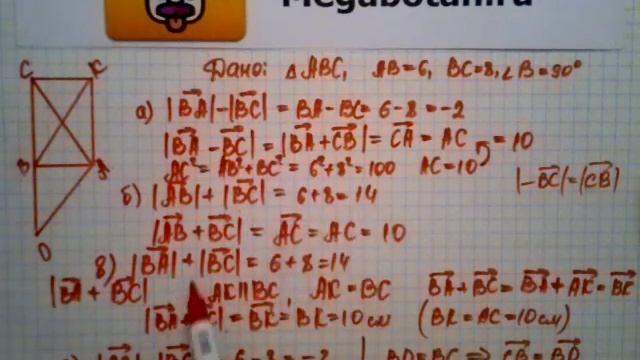 Megabotan.ru
Дано: △ABC, AB=6, BC=8, ∠B=90°
C K
B A
D
а) |BA⃗|-|BC⃗| = BA-BC= 6-8=-2
|BA⃗ -BC⃗|=|BA⃗+CB⃗|= CA⃗ = AC = 10
AC²=AB²+BC²=6²+8²=100 AC=10
|-BC⃗|=|CB⃗|
б) |AB⃗|+|BC⃗|= 6+8=14
|AB⃗+BC⃗|= AC⃗= AC= 10
в) |BA⃗|+|BC⃗|= 6+8=14
|BA⃗ + BC⃗| AK∥BC, AK=BC BA⃗+BC⃗=BA⃗+AK⃗=BK⃗
|BA⃗ |=BK⃗=BK=10см (BK=AC=10см)